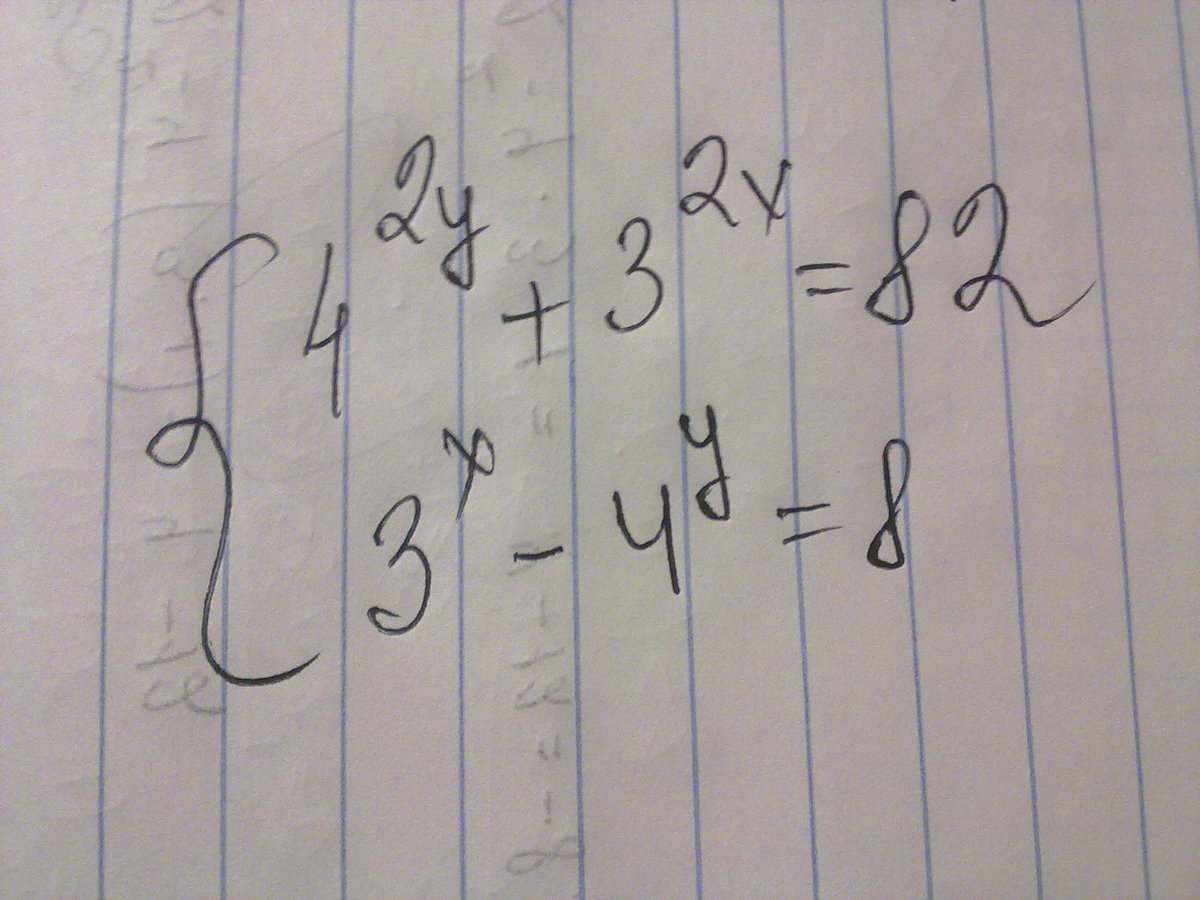 4^{2y} + 3^{2x} = 82
3^x - 4^y = 8